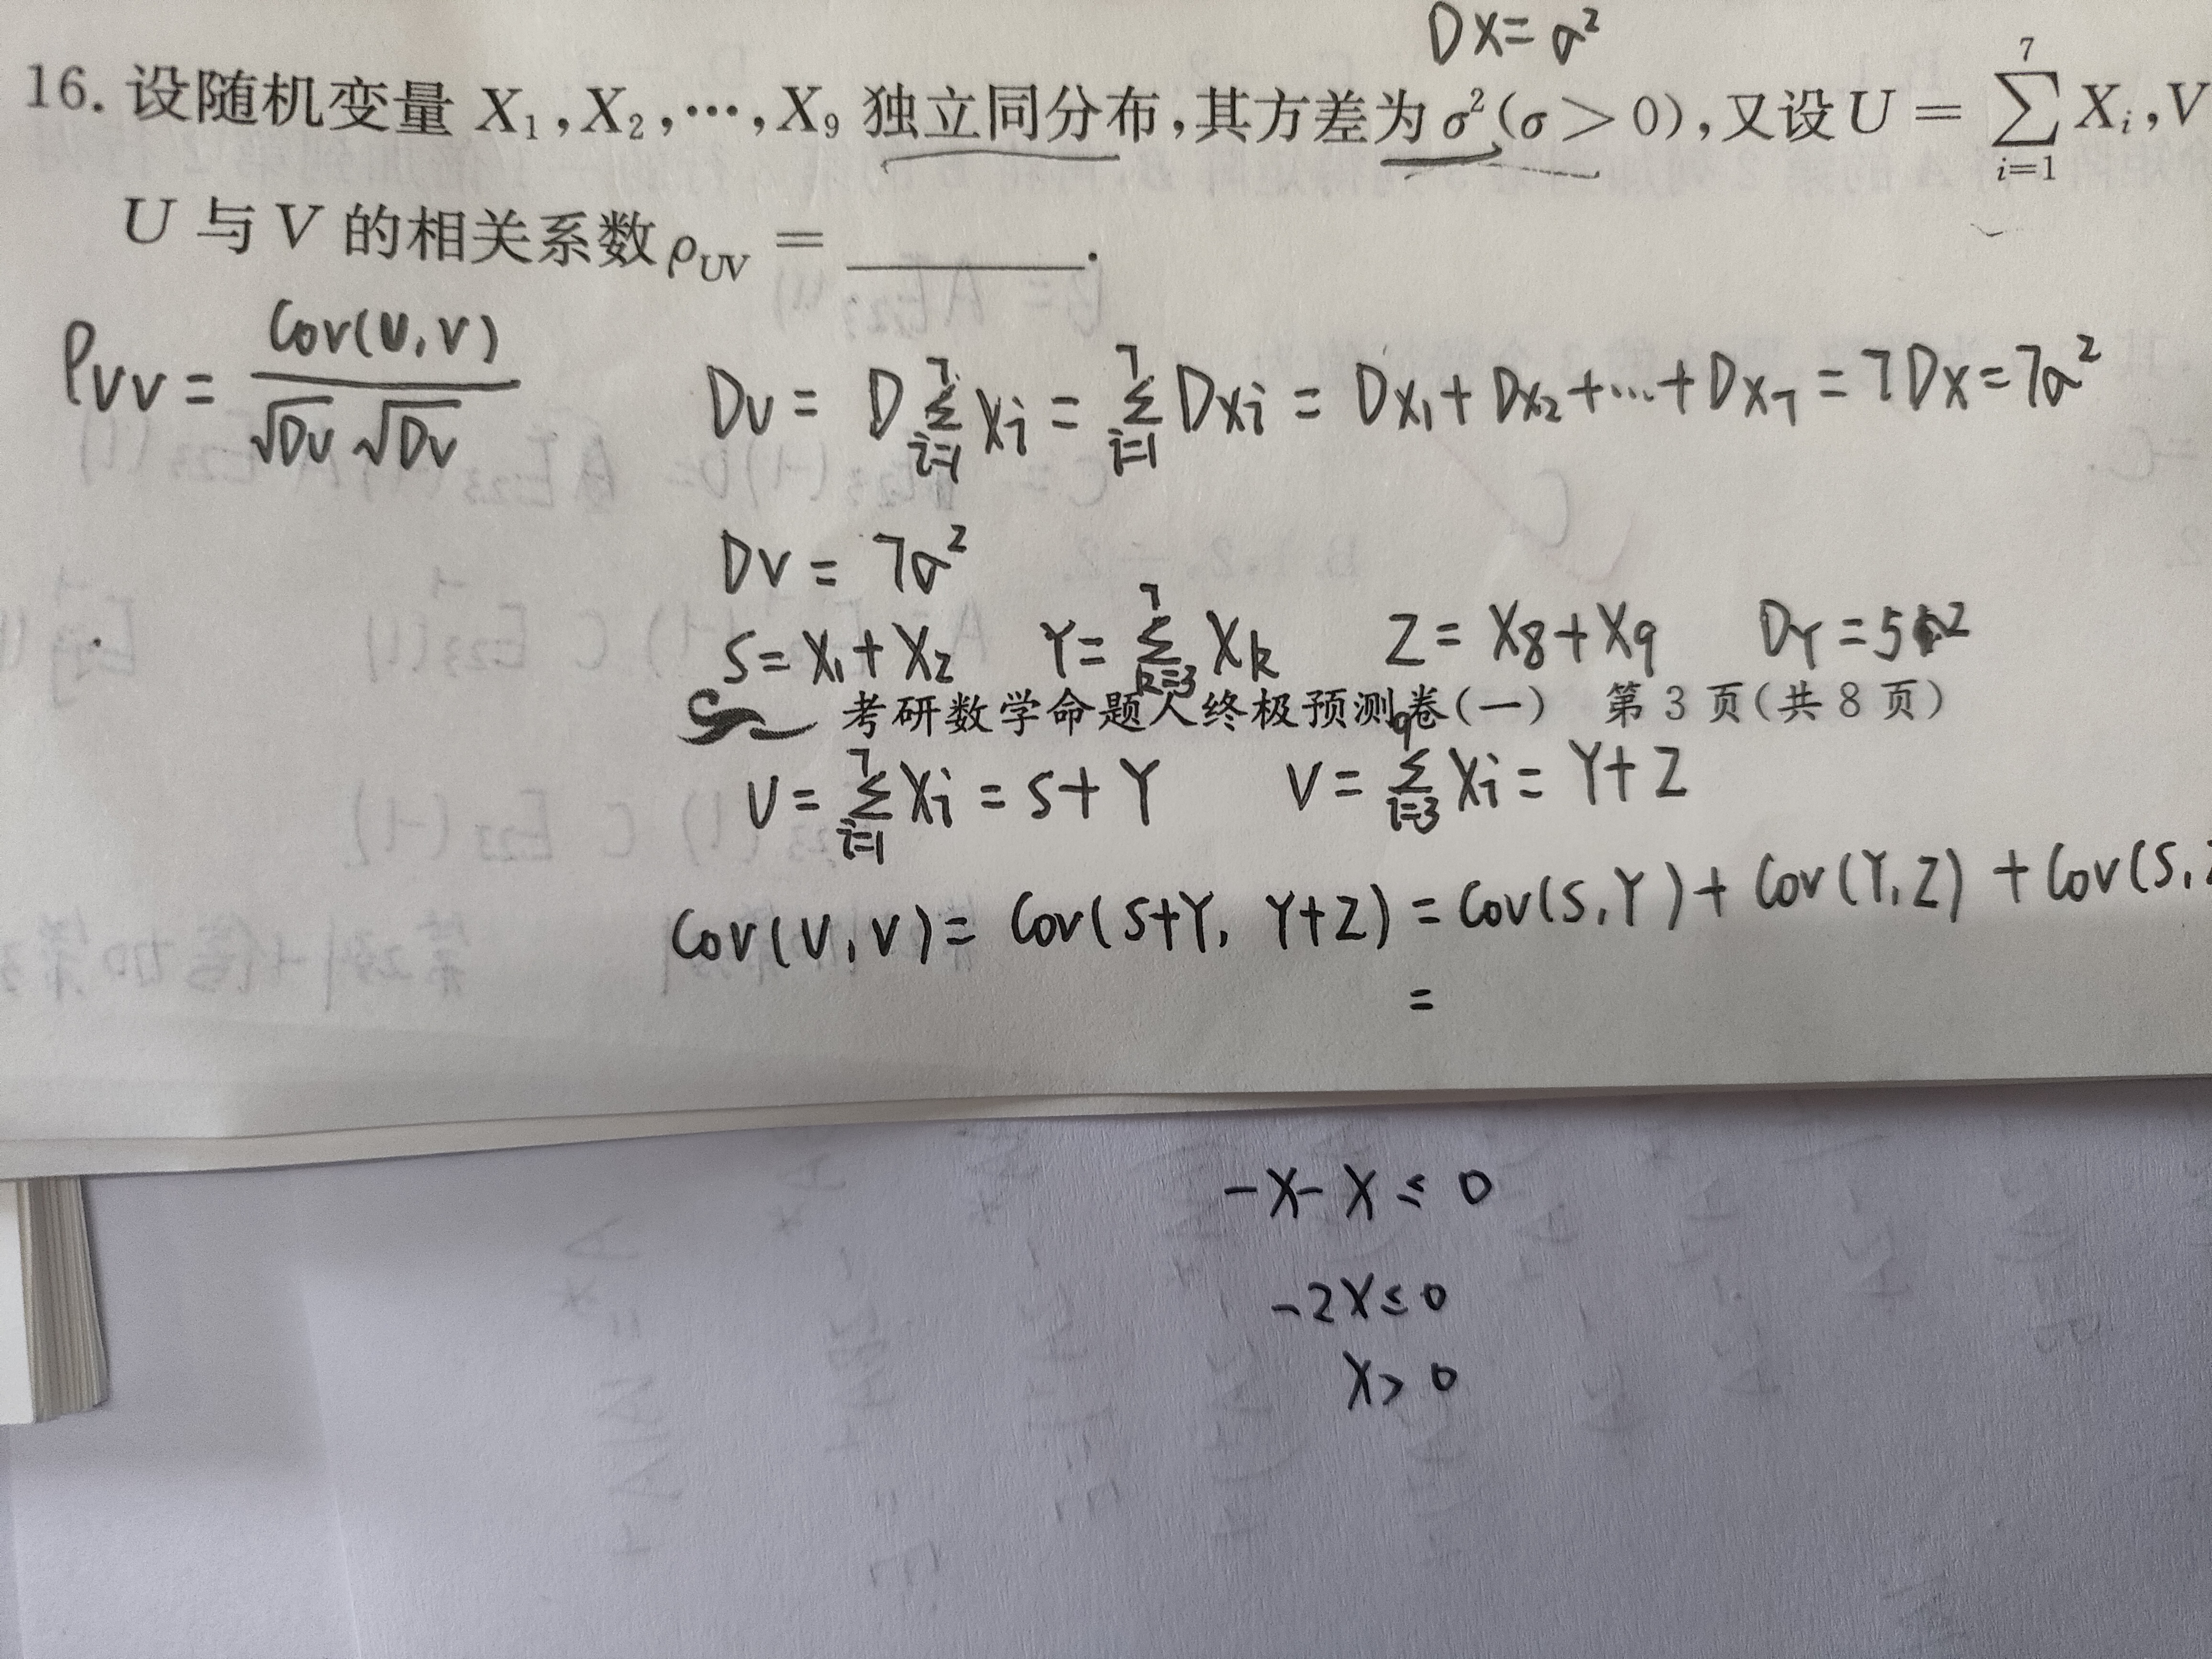 DX = σ²
16. 设随机变量 X₁,X₂,⋯,X₉ 独立同分布,其方差为 σ²(σ > 0),又设 U = ∑_{i=1}^{7} X_i,V
U 与 V 的相关系数 ρ_{UV} = ________.
ρ_{UV} = Cov(U,V) / (√DU √DV)
DU = D∑_{i=1}^{7} Xi = ∑_{i=1}^{7} DXi = DX₁ + DX₂ + ⋯ + DX₇ = 7DX = 7σ²
DV = 7σ²
S = X₁ + X₂ Y = ∑_{k=3}^{7} X_k Z = X₈ + X₉ DY = 5σ²
考研数学命题人终极预测卷(一) 第 3 页(共 8 页)
U = ∑_{i=1}^{7} Xi = S + Y V = ∑_{i=3}^{9} Xi = Y + Z
Cov(U,V) = Cov(S+Y, Y+Z) = Cov(S,Y) + Cov(Y,Z) + Cov(S,
=
-X-X ≤ 0
-2X ≤ 0
X > 0